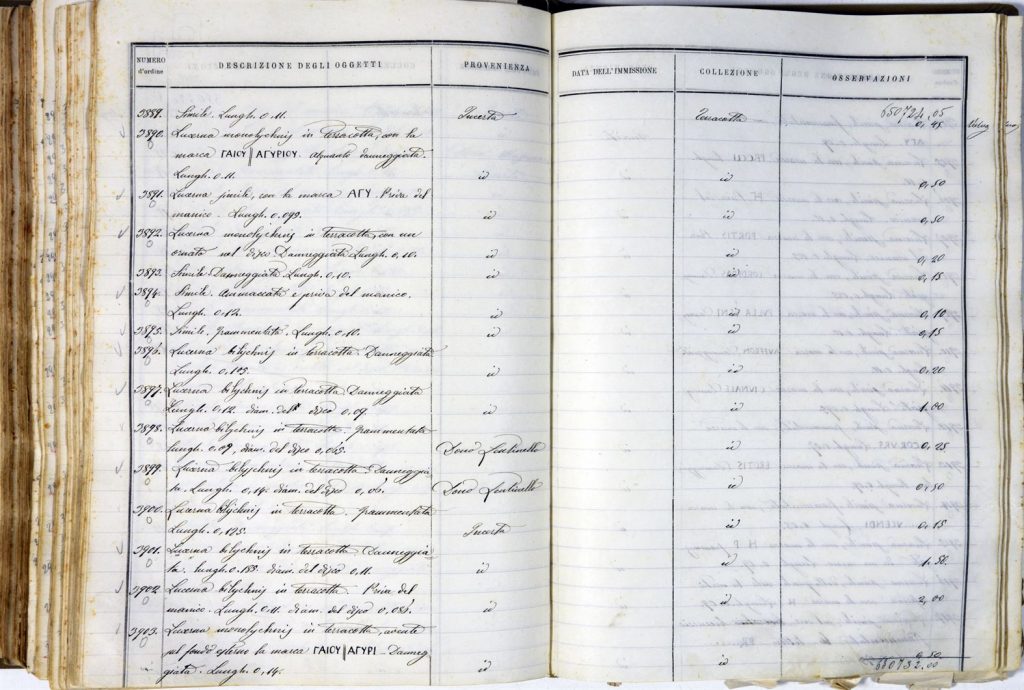 NUMERO d'ordine DESCRIZIONE DEGLI OGGETTI PROVENIENZA DATA DELL'IMMISSIONE COLLEZIONE OSSERVAZIONI
650724,05
3889. Simile. Lungh. 0,11. Incerta Terracotta 0,45
3890. Lucerna monolychnis in terracotta, con la
marca ΓΑΙΟΥ || ΑΓΥΡΙΟΥ. alquanto danneggiata.
Lungh. 0,11. id id 0,50
3891. Lucerna simile, con la marca ΑΓΥ. Priva del
manico. Lungh. 0,093. id id 0,50
3892. Lucerna monolychnis in terracotta, con un
ornato nel disco Danneggiata Lungh. 0,10. id id 0,20
3893. Simile Danneggiata Lungh. 0,10. id id 0,15
3894. Simile. ammaccata e priva del manico.
Lungh. 0,12. id id 0,10
3895. Simile. frammentata. Lungh. 0,10. id id 0,15
3896. Lucerna bilychnis in terracotta. Danneggiata
Lungh. id id 0,20
3897. Lucerna bilychnis in terracotta Danneggiata
Lungh. 0,12. diam. del disco 0,09. id id 1,00
3898. Lucerna bilychnis in terracotta. frammentata
lungh. 0,09, diam. del disco 0,065. Dono Sentinello id 0,25
3899. Lucerna bilychnis in terracotta. Danneggia-
ta. Lungh. 0,14. diam. del disco 0,06. Dono Sentinello id 0,50
3900. Lucerna bilychnis in terracotta. frammentata
Lungh. 0,125. Incerta id 0,15
3901. Lucerna bilychnis in terracotta Danneggia-
ta. lungh. 0,185. diam. del disco 0,11. id id 1,50
3902. Lucerna bilychnis in terracotta. Priva del
manico. Lungh. 0,11. diam. del disco 0,086. id id 2,00
3903. Lucerna monolychnis in terracotta, avente
sul fondo esterno la marca ΓΑΙΟΥ || ΑΓΥΡΙ - Danneg
giata. Lungh. 0,14. id id 0,50
650732,00